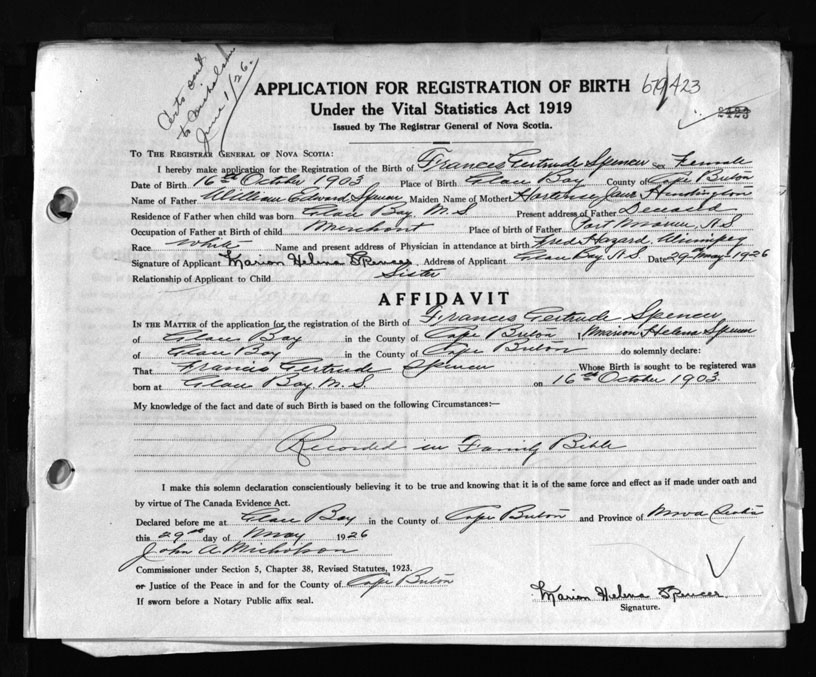 sent
to Nicholson
June 1/26.
APPLICATION FOR REGISTRATION OF BIRTH 679423
Under the Vital Statistics Act 1919
Issued by The Registrar General of Nova Scotia.
TO THE REGISTRAR GENERAL OF NOVA SCOTIA:
I hereby make application for the Registration of the Birth of Frances Gertrude Spencer Sex Female
Date of Birth 16th October 1903 Place of Birth Glace Bay County of Cape Breton
Name of Father William Edward Spencer Maiden Name of Mother Hortense Jane Huntington
Residence of Father when child was born Glace Bay, N.S Present address of Father Deceased
Occupation of Father at Birth of child Merchant Place of birth of Father Port Morien, N.S
Race White Name and present address of Physician in attendance at birth Fred Hazard, Winnipeg
Signature of Applicant Marion Helena Spencer Address of Applicant Glace Bay, N.S. Date 29 May 1926
Relationship of Applicant to Child Sister
AFFIDAVIT
IN THE MATTER of the application for the registration of the Birth of Frances Gertrude Spencer
of Glace Bay in the County of Cape Breton I, Marion Helena Spencer
of Glace Bay in the County of Cape Breton do solemnly declare:
That Francis Gertrude Spencer Whose Birth is sought to be registered was
born at Glace Bay, N.S. on 16th October 1903.
My knowledge of the fact and date of such Birth is based on the following Circumstances:—
Recorded in Family Bible
I make this solemn declaration conscientiously believing it to be true and knowing that it is of the same force and effect as if made under oath and
by virtue of The Canada Evidence Act.
Declared before me at Glace Bay in the County of Cape Breton and Province of Nova Scotia
this 29th day of May 1926
John A. Nicholson
Commissioner under Section 5, Chapter 38, Revised Statutes, 1923.
or Justice of the Peace in and for the County of Cape Breton
If sworn before a Notary Public affix seal.
Marion Helena Spencer.
Signature.